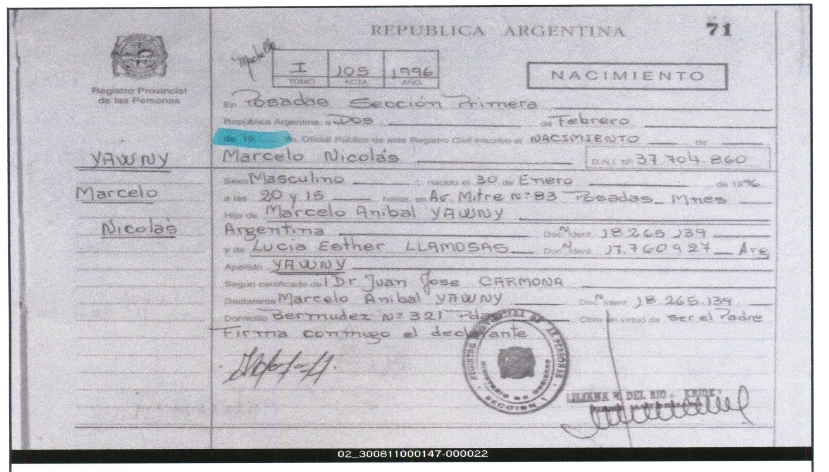 REPUBLICA ARGENTINA 71
Registro Provincial
de las Personas
I 105 1996
TOMO ACTA AÑO
NACIMIENTO
En Posadas Sección Primera
República Argentina, a Dos de Febrero
de 19 yo, Oficial Público de este Registro Civil inscribo el NACIMIENTO de
YAWNY
Marcelo
Nicolás
Marcelo Nicolás D.N.I. Nº 37.704.860
Sexo Masculino nacido el 30 de Enero de 1996
a las 20 y 15 horas, en Av. Mitre Nº 83 Posadas Mnes
Hijo de Marcelo Anibal YAWNY
Argentina Doc. Ident. 18.265.139
y de Lucia Esther LLAMOSAS Doc. Ident. 17.760.927 Arg
Apellido YAWNY
Según certificado de l Dr Juan Jose CARMONA
Declarante Marcelo Anibal YAWNY Doc. Ident. 18.265.139
Domicilio Bermudez Nº 321 Pdas Obra en virtud de ser el Padre
Firma conmigo el declarante
REGISTRO PROVINCIAL DE LAS PERSONAS
MINISTERIO DE GOBIERNO
SECCION I
LILIANA R. DEL RIO
02_300811000147-000022